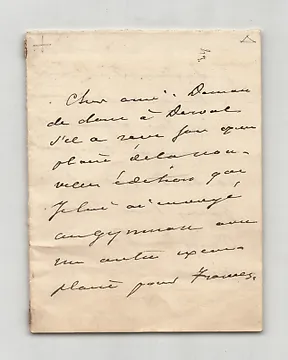 Cher ami. Deman
de donc à Derval
s'il a reçu son exem
plaire de la nou-
velle édition que
je lui ai envoyé
au gymnase avec
un autre exem
plaire pour Frances.